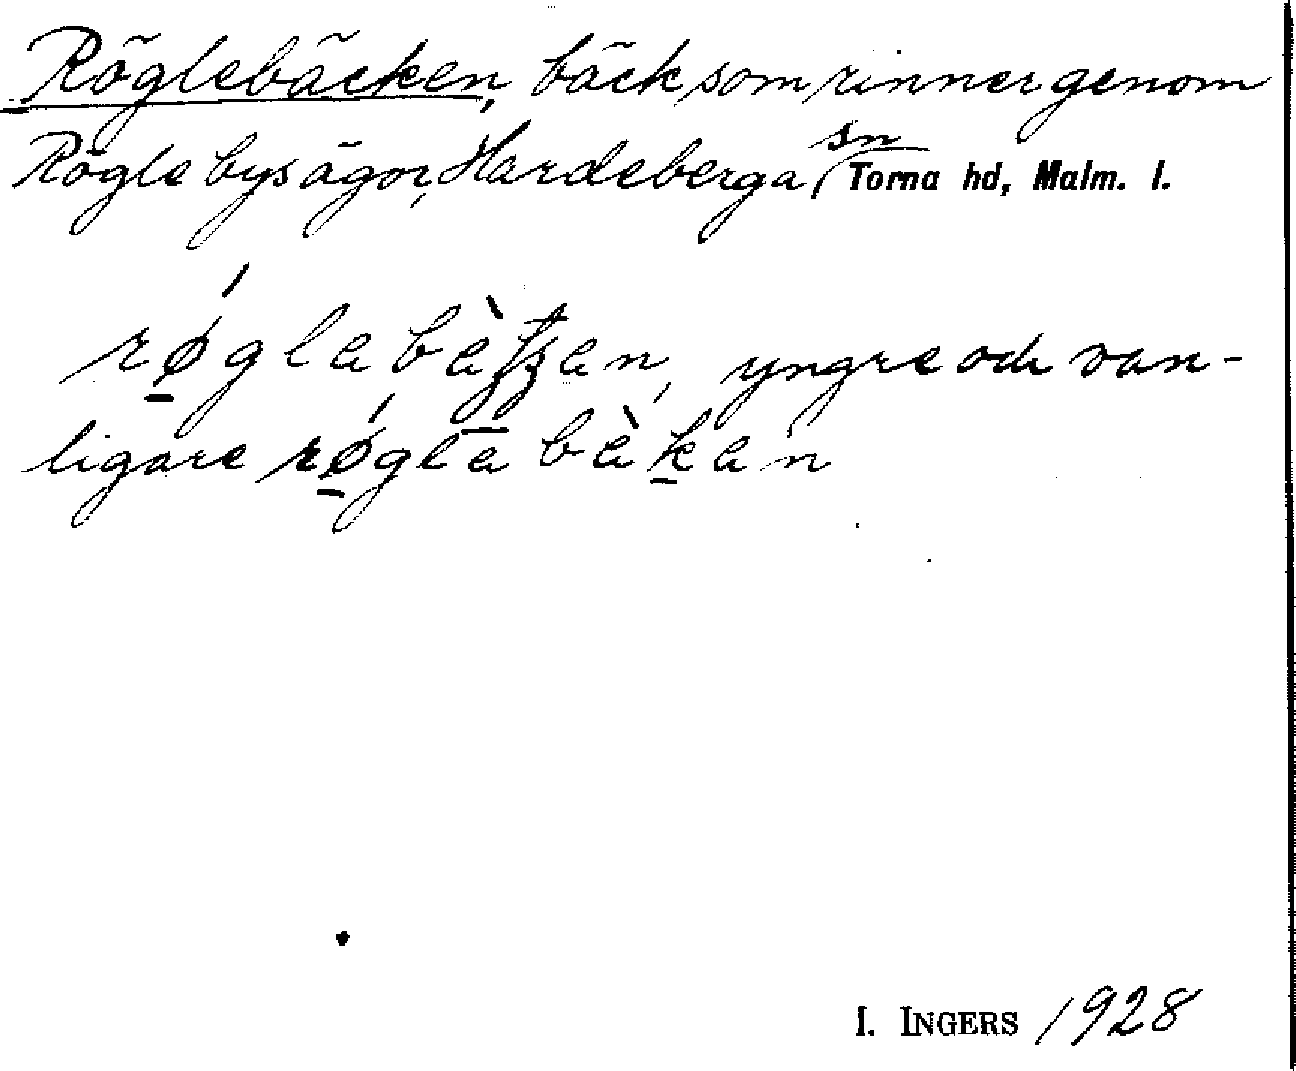 Röglebäcken, bäck som rinner genom
Rögle bys ägor, Hardeberga sn Torna hd, Malm. l.
yngre och van-
ligare
I. INGERS 1928